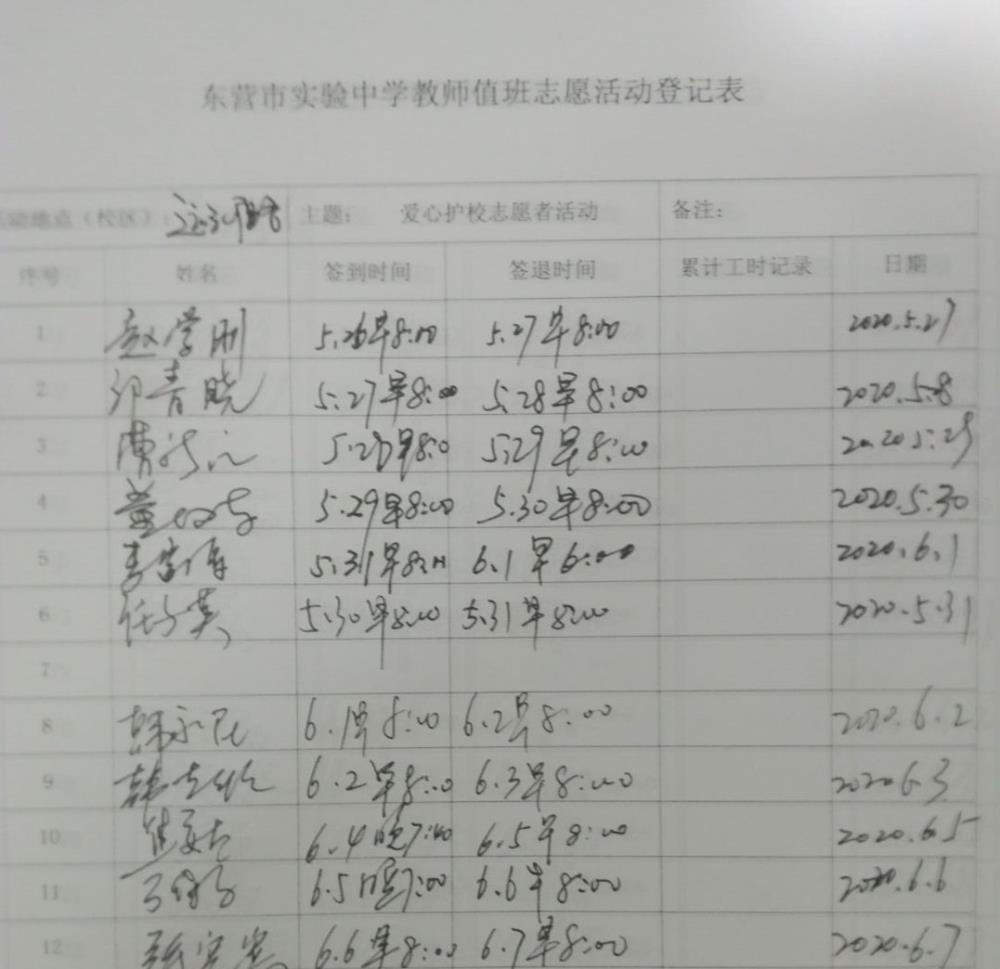 东营市实验中学教师值班志愿活动登记表
活动地点（校区） 主题： 爱心护校志愿者活动 备注：
序号 姓名 签到时间 签退时间 累计工时记录 日期
1 赵学刚 5.26早8:00 5.27早8:00 2020.5.27
2 邱青晓 5.27早8:00 5.28早8:00 2020.5.8
3 5.28早8:0 5.29早8:00 2020 5.29
4 董 5.29早8:00 5.30早8:00 2020.5.30
5 李 5.31早8:00 6.1早6:00 2020.6.1
6 任 英 5.30早8:00 5.31早8:00 2020.5.31
7
8 韩永 6.1早8:00 6.2早8:00 2020.6.2
9 韩 6.2早8:00 6.3早8:00 2020 6.3
10 6.4晚7:00 6.5早8:00 2020.6.5
11 6.5晚7:00 6.6早8:00 2020.6.6
12 张宝 6.6早8:00 6.7早8:00 2020.6.7